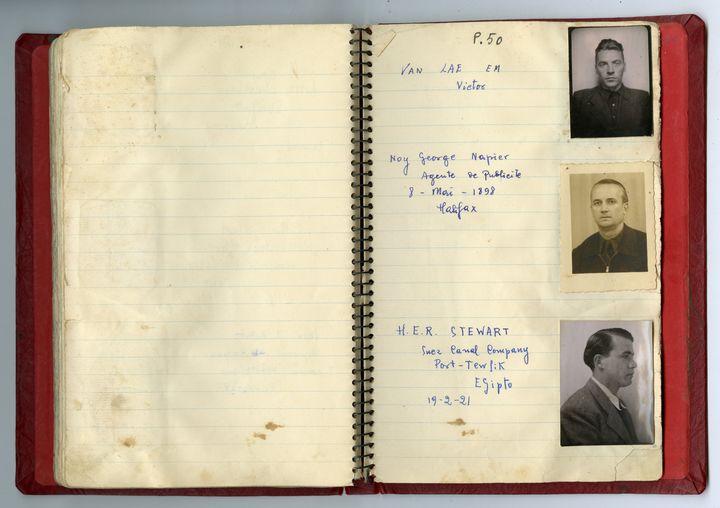 P.50
VAN LAE EM
Victor
Noy George Napier
Agente de Publicite
8 - Mai - 1898
Halifax
H.E.R. STEWART
Suez Canal Company
Port-Tewfik
Egipto
19-2-21